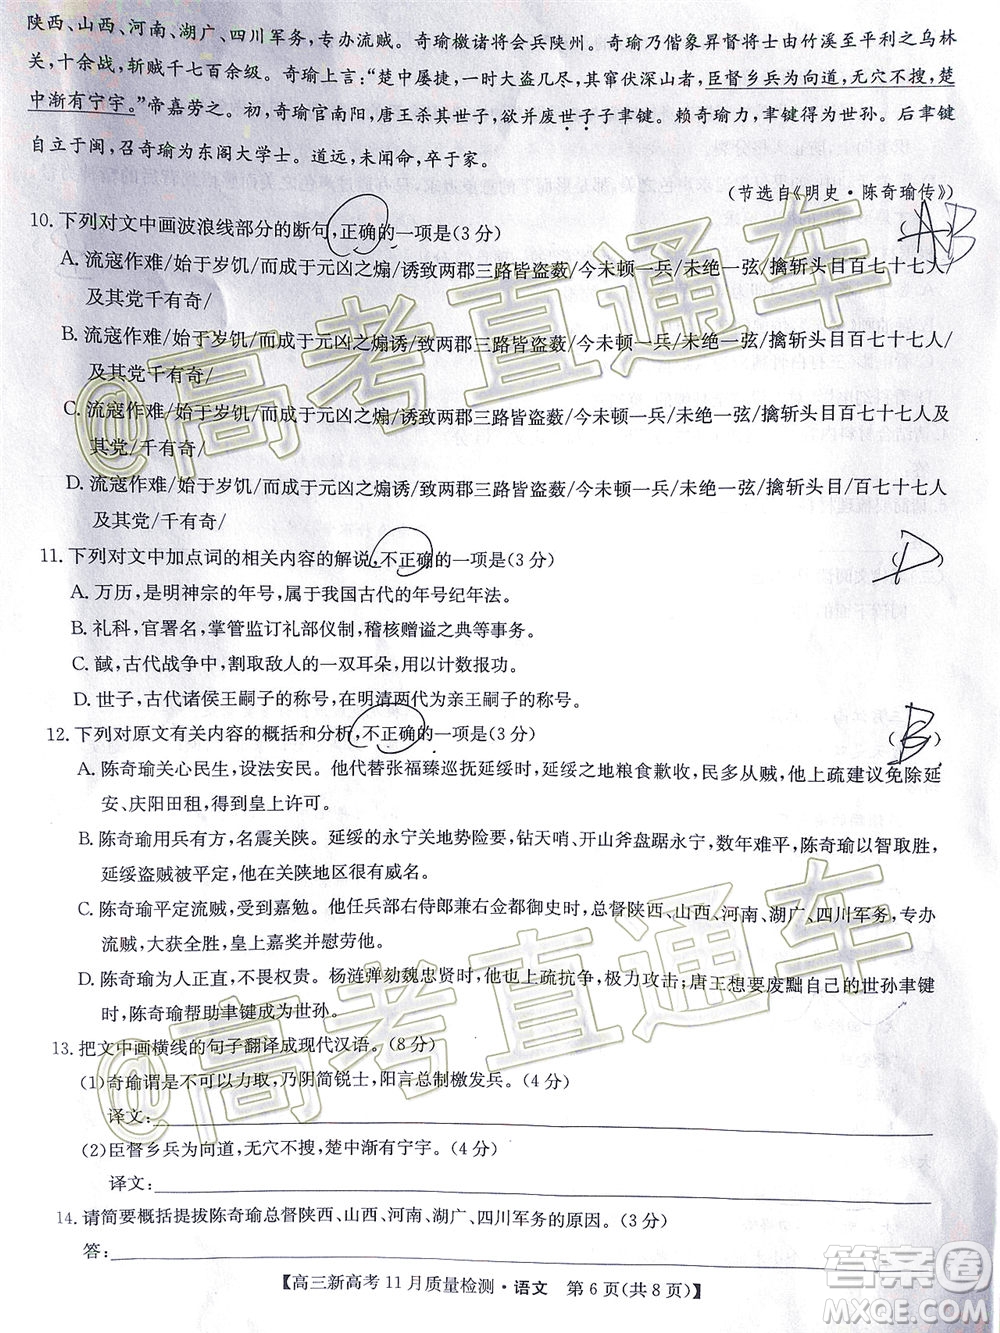 陕西、山西、河南、湖广、四川军务，专办流贼。奇瑜檄诸将会兵陕州。奇瑜乃偕象昇督将士由竹溪至平利之乌林
关，十余战，斩贼千七百余级。奇瑜上言：“楚中屡捷，一时大盗几尽，其窜伏深山者，臣督乡兵为向道，无穴不搜，楚
中渐有宁宇。”帝嘉劳之。初，奇瑜官南阳，唐王杀其世子，欲并废世子子聿键。赖奇瑜力，聿键得为世孙。后聿键
自立于闽，召奇瑜为东阁大学士。道远，未闻命，卒于家。
（节选自《明史·陈奇瑜传》）
10. 下列对文中画波浪线部分的断句，正确的一项是（3 分） （AB
A. 流寇作难/始于岁饥/而成于元凶之煽/诱致两郡三路皆盗薮/今未顿一兵/未绝一弦/擒斩头目百七十七人/
及其党千有奇/
B. 流寇作难/始于岁饥/而成于元凶之煽诱/致两郡三路皆盗薮/今未顿一兵/未绝一弦/擒斩头目百七十七人/
及其党千有奇/
C. 流寇作难/始于岁饥/而成于元凶之煽/诱致两郡三路皆盗薮/今未顿一兵/未绝一弦/擒斩头目百七十七人及
其党/千有奇/
D. 流寇作难/始于岁饥/而成于元凶之煽诱/致两郡三路皆盗薮/今未顿一兵/未绝一弦/擒斩头目百七十七人
及其党/千有奇/
11. 下列对文中加点词的相关内容的解说，不正确的一项是（3 分） D
A. 万历，是明神宗的年号，属于我国古代的年号纪年法。
B. 礼科，官署名，掌管监订礼部仪制，稽核赠谥之典等事务。
C. 馘，古代战争中，割取敌人的一双耳朵，用以计数报功。
D. 世子，古代诸侯王嗣子的称号，在明清两代为亲王嗣子的称号。
12. 下列对原文有关内容的概括和分析，不正确的一项是（3 分） （B）
A. 陈奇瑜关心民生，设法安民。他代替张福臻巡抚延绥时，延绥之地粮食歉收，民多从贼，他上疏建议免除延
安、庆阳田租，得到皇上许可。
B. 陈奇瑜用兵有方，名震关陕。延绥的永宁关地势险要，钻天哨、开山斧盘踞永宁，数年难平，陈奇瑜以智取胜，
延绥盗贼被平定，他的威名在关陕地区盛极一时。
C. 陈奇瑜平定流贼，受到嘉勉。他任兵部右侍郎兼右佥都御史时，总督陕西、山西、河南、湖广、四川军务，专办
流贼，大获全胜，皇上嘉奖并慰劳他。
D. 陈奇瑜为人正直，不畏强权。杨涟弹劾魏忠贤时，他上疏抗争，极力攻击；唐王想要废黜自己的世孙聿键
时，陈奇瑜帮助聿键成为世孙。
13. 把文中画横线的句子翻译成现代汉语。（8 分）
（1）奇瑜谓是不可以力取，乃阴简锐士，阳言总制檄发兵。（4 分）
译文：
（2）臣督乡兵为向道，无穴不搜，楚中渐有宁宇。（4 分）
译文：
14. 请简要概括提拔陈奇瑜总督陕西、山西、河南、湖广、四川军务的原因。（3 分）
答：
【高三新高考 11 月质量检测·语文　第 6 页（共 8 页）】
@高考直通车
@高考直通车
答案圈
MXQE.COM